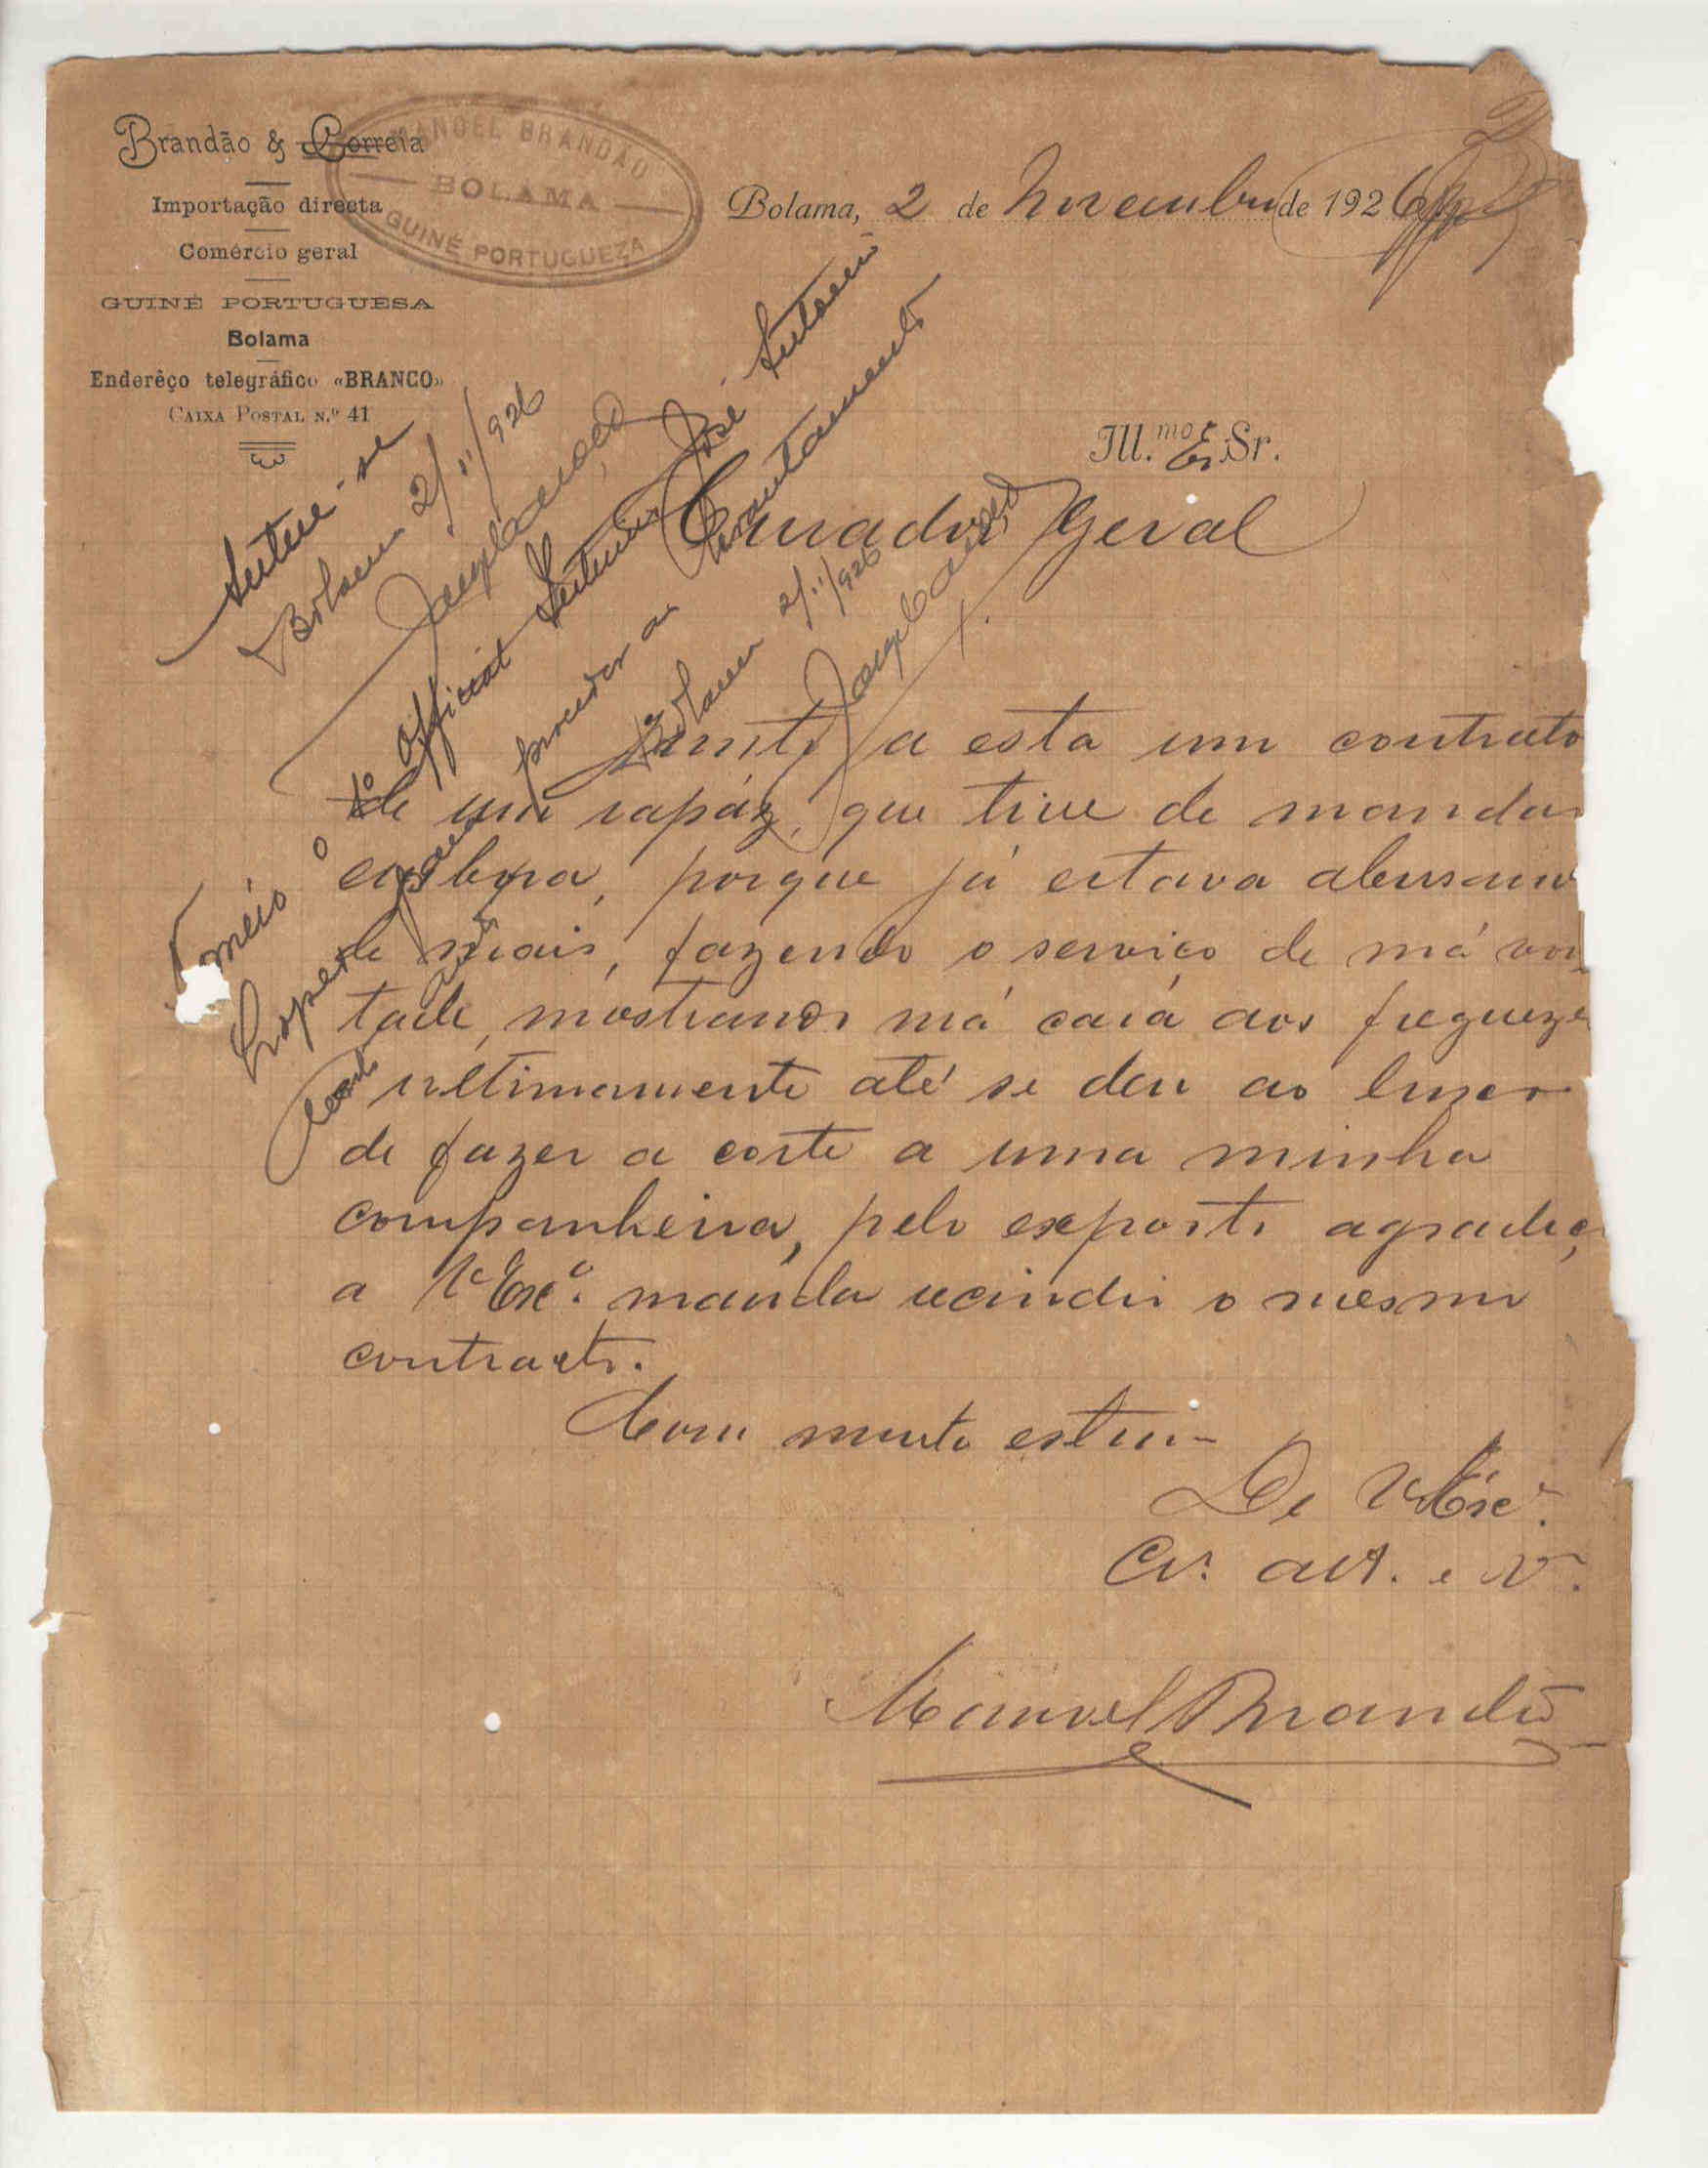 Brandão & Correia
Importação directa
Comércio geral
GUINÉ PORTUGUESA
Bolama
Enderêço telegráfico «BRANCO»
CAIXA POSTAL N.º 41
MANOEL BRANDÃO
BOLAMA
GUINÉ PORTUGUEZA
Bolama, 2 de Novembro de 1926
2
Ill.mo Ex. Sr.
Curador Geral
Autue-se
Bolama 2/11/926
Nomeio o 1º official António José
proceder ao
levantamento
Bolama 2/11/926
Junto a esta um contrato
de um rapáz, que tive de mandar
embora, porque já estava abusando
de mais, fazendo o serviço de má von
tade, mostrando má cara aos freguezes
ultimamente até se deu ao luxo
de fazer a corte a uma minha
companheira, pelo exposto agradeço
a V. Exª. manda recindir o mesmo
contracto.
Com muita estima
De V. Exª.
Cr. att. e V.
Manuel Brandão